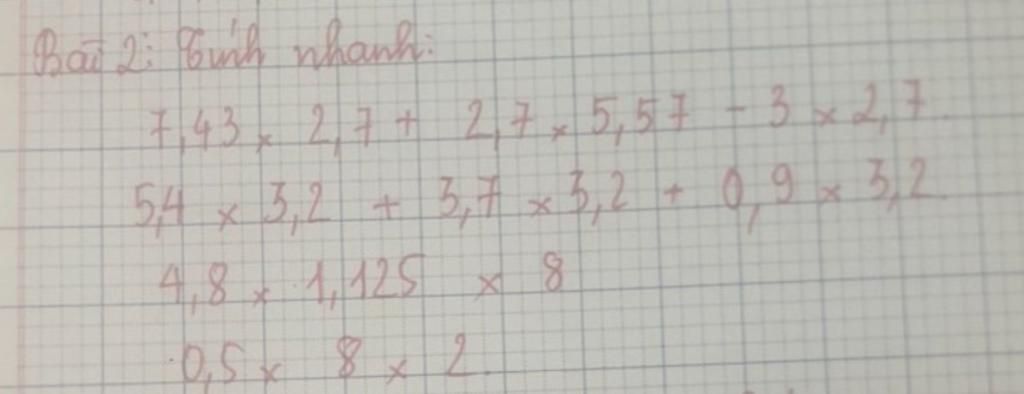 Bài 2: Tính nhanh:
7,43 × 2,7 + 2,7 × 5,57 - 3 × 2,7
5,4 × 3,2 + 3,7 × 3,2 + 0,9 × 3,2
4,8 × 1,125 × 8
0,5 × 8 × 2